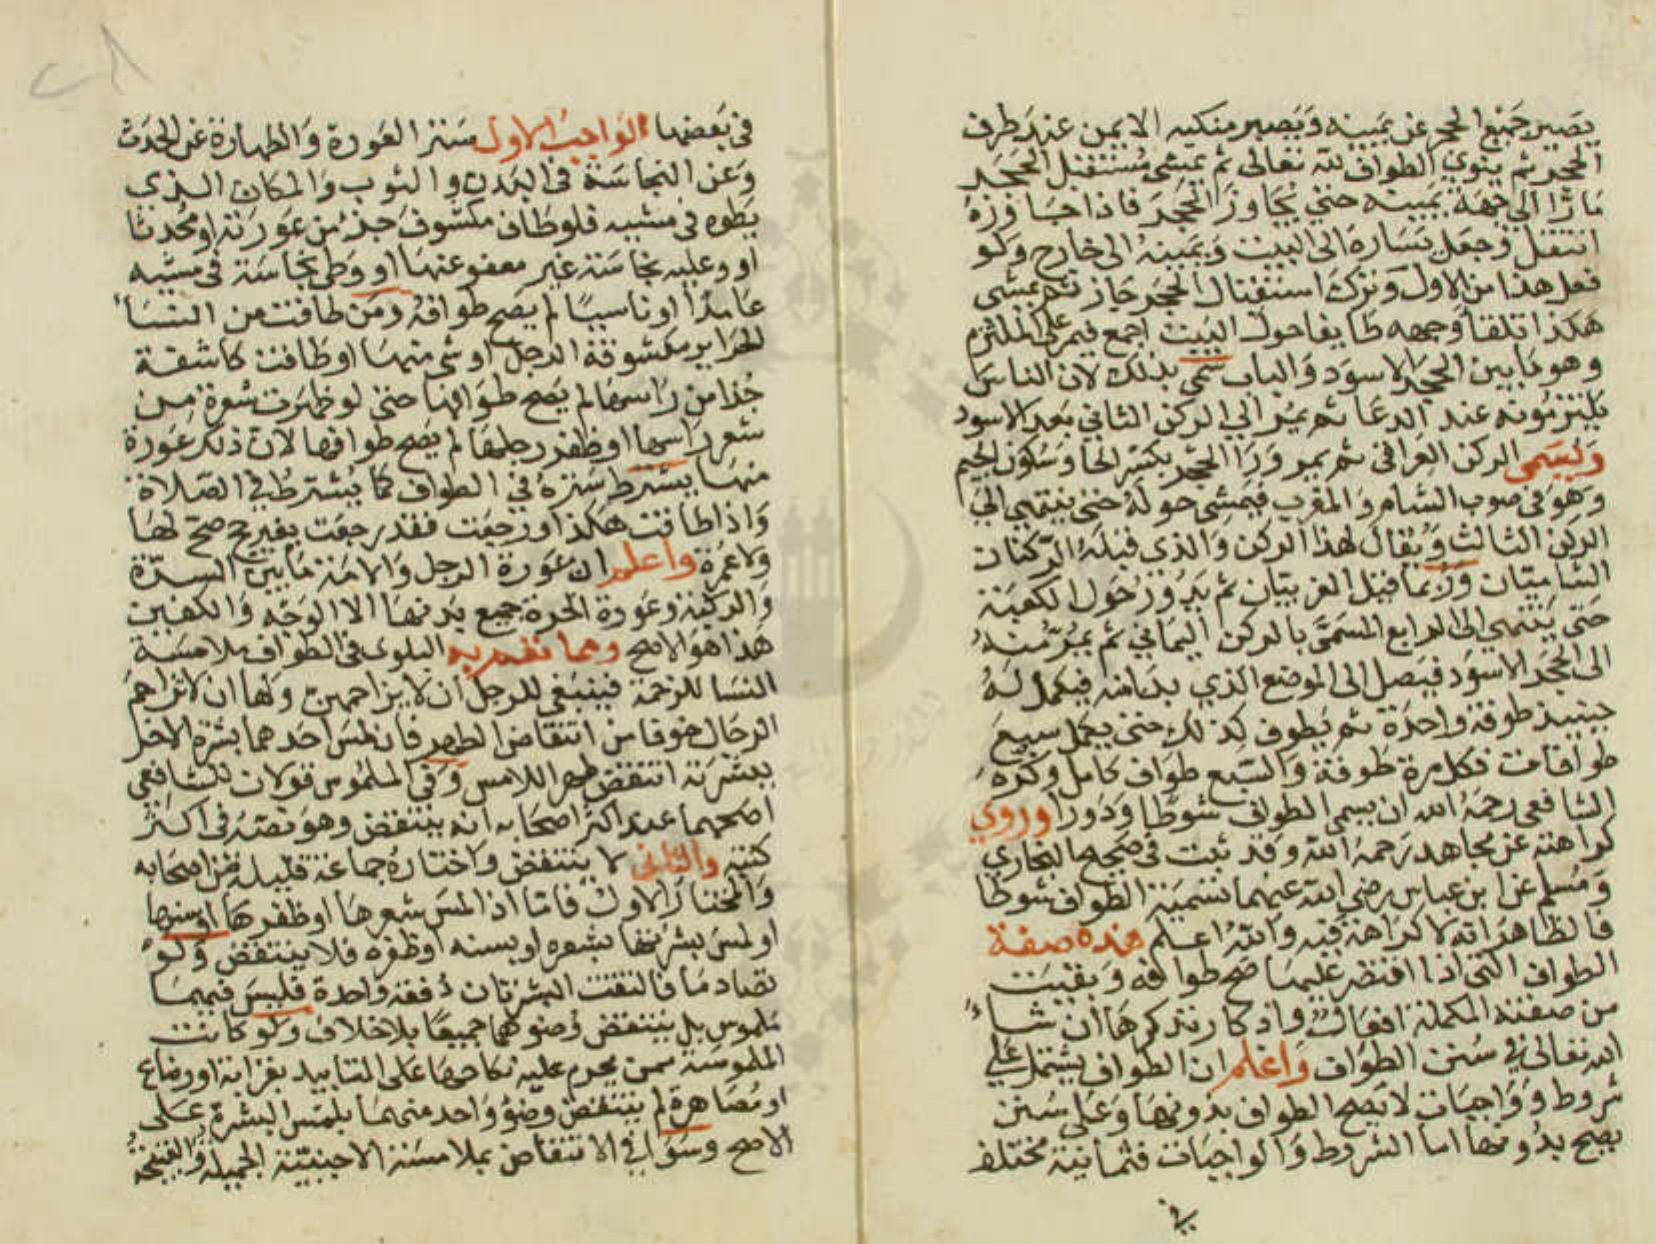 يصير جميع الحجر عن يمينه ويصير منكبه الايمن عند طرف
الحجر ثم ينوي الطواف لله تعالى ثم يمشي مستقبل الحجر
مارا الى جهة يمينه حتى يجاوز الحجر فاذا جاوزه
انتقل وجعل يساره الى البيت ويمينه الى خارج ولو
فعل هذا من الاول وترك استقبال الحجر جاز ثم يمشي
هكذا تلقا وجهه طايفا حول البيت اجمع فيمر على الملتزم
وهو ما بين الحجر الاسود والباب سمي بذلك لان الناس
يلتزمونه عند الدعا ثم يمر الي الركن الثاني بعد الاسود
ويسمى الركن العراقي ثم يمر ورا الحجر بكسر الحا وسكون الجيم
وهو في صوب الشام والمغرب فيمشي حوله حتى ينتهي الي
الركن الثالث ويقال لهذا الركن والذي قبله الركنان
الشاميان وربما قيل الغربيان ثم يدور حول الكعبة
حتى ينتهي الى الرابع المسمى بالركن اليماني ثم يمر منه
الى الحجر الاسود فيصل الى الموضع الذي بدا منه فيكمل له
حينيذ طوفة واحدة ثم يطوف كذلك حتى يكمل سبع
طوافات فكل مرة طوفة والسبع طواف كامل وكره
الشافعي رحمه الله ان يسمى الطواف شوطا ودورا وروي
كراهته عن مجاهد رحمه الله وقد ثبت في صحيحي البخاري
ومسلم عن ابن عباس رضي الله عنهما تسمية الطواف شوطا
فالظاهر انه لا كراهة فيه والله اعلم هذه صفة
الطواف التي اذا اقتصر عليها صح طوافه وبقيت
من صفته المكملة افعال واذكار نذكرها ان شاء
الله تعالى في سنن الطواف واعلم ان الطواف يشتمل علي
شروط وواجبات لا يصح الطواف بدونها وعلى سنن
يصح بدونها اما الشروط والواجبات فثمانية مختلف
في بعضها الواجب الاول ستر العورة والطهارة عن الحدث
وعن النجاسة في البدن والثوب والمكان الذي
يطوه في مشيه فلو طاف مكشوف جذء من عورته او محدثا
او وعليه نجاسة غير معفو عنها او وطى نجاسة في مشيه
عامدا او ناسيا لم يصح طوافه ومن طافت من النسا
الحراير مكشوفة الرجل او شى منها او طافت كاشفة
جذا من راسها لم يصح طوافها حتى لو ظهرت شعرة من
شعر راسها او ظفر رجلها لم يصح طوافها لان ذلك عورة
منها يشترط ستره في الطواف كما يشترط في الصلاة
واذا طافت هكذا ورجعت فقد رجعت بغير حج صح لها
ولا عمرة واعلم ان عورة الرجل والامة ما بين السرة
والركبة وعورة الحرة جميع بدنها الا الوجه والكفين
هذا هو الاصح ومما تعم به البلوى في الطواف ملامسة
النسا للزحمة فينبغي للرجل ان لا يزاحمهن ولها ان لا تزاحم
الرجال خوفا من انتقاض الطهر فان لمس احدهما بشرة الاخر
ببشرته انتقض طهر اللامس وفي الملموس قولان للشافعي
اصحهما عند اكثر اصحابه انه ينتقض وهو نصه في اكثر
كتبه والثاني لا ينتقض واختاره جماعة قليلة من اصحابه
والمختار الاول فاما اذا لمس شعرها او ظفرها او سنها
او لمس بشرتها بشعره او بسنه او ظفره فلا ينتقض ولو
تصادما فالتقت البشرتان دفعة واحدة فليس فيهما
ملموس بل ينتقض وضوهما جميعا بلا خلاف ولو كانت
الملموسة ممن يحرم عليه نكاحها على التابيد بقرابة او رضاع
او مصاهرة لم ينتقض وضؤ واحد منهما بلمس البشرة على
الاصح وسوا في الانتقاض بملامسة الاجنبية الجميلة والقبيحة